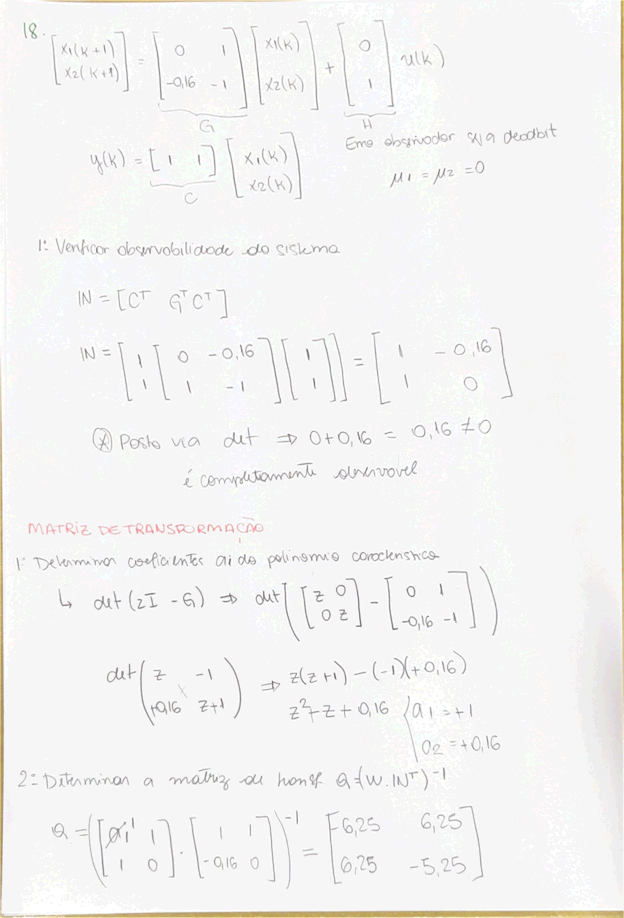 18. [x1(k+1) x2(k+1)] = [0 1 -0,16 -1] [x1(k) x2(k)] + [0 1] u(k)
G H
Erro observador seja deadbeat
y(k) = [1 1] [x1(k) x2(k)]
C
μ1 = μ2 = 0
1º Verificar observabilidade do sistema
IN = [Cᵀ GᵀCᵀ]
IN = [1 1 [0 -0,16 1 -1] [1 1]] = [1 -0,16 1 0]
(*) Posto via det ⇒ 0+0,16 = 0,16 ≠ 0
é completamente observável
MATRIZ DE TRANSFORMAÇÃO
1º Determinar coeficientes ai do polinomio caracteristico
↳ det (zI - G) ⇒ det([z 0 0 z] - [0 1 -0,16 -1])
det(z -1 +0,16 z+1) ⇒ z(z+1) - (-1)(+0,16)
z²+z+0,16 { a1 = +1
a2 = +0,16
2º Determinar a matriz de transf Q=(W.INᵀ)⁻¹
Q = ([1 1 1 0] . [1 1 -0,16 0])⁻¹ = [-6,25 6,25 6,25 -5,25]